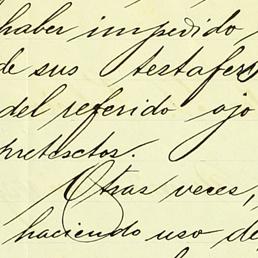 haber impedido
de sus testafer
del referido ojo
pretesctos.
Otras veces,
haciendo uso de